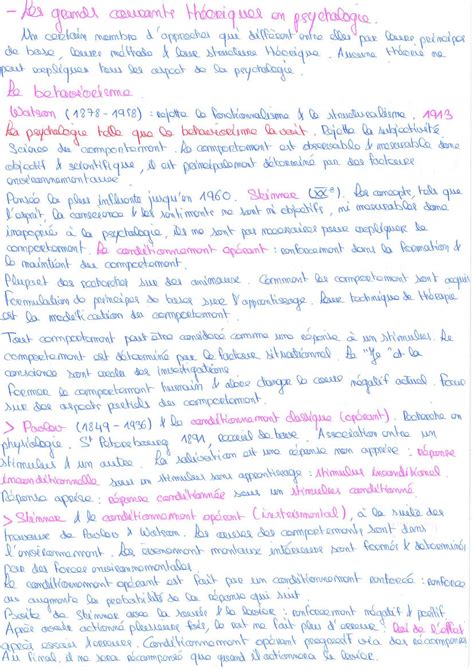 - Les grands courants théoriques en psychologie.
Un certain nombre d'approches qui diffèrent entre elles par leurs principes
de base, leurs méthodes & leur structure théorique. Aucune théorie ne
peut expliquer tous les aspect de la psychologie.
Le behaviorisme
Watson (1878-1958) : rejette le fonctionnalisme & le structuralisme. 1913
La psychologie telle que le behaviorisme la voit. Rejette la subjectivité
Science du comportement. Le comportement est observable & mesurable donc
objectif & scientifique, il est principalement déterminé par des facteurs
environnementaux
Pensée la plus influente jusqu'en 1960. Skinner (XXe). Les concepts, tels que
l'esprit, la conscience & les sentiments ne sont ni objectifs, ni mesurables donc
inapproprié à la psychologie, ils ne sont pas nécessaires pour expliquer le
comportement. Le conditionnement opérant : renforcement dans la formation &
le maintient du comportement.
Plupart des recherches sur des animaux. Comment les comportements sont acquis
Formulation de principes de bases sur l'apprentissage. Leur technique de thérapie
est la modification du comportement.
Tout comportement peut être considéré comme une réponse à un stimulus. Le
comportement est déterminé par le facteur situationnel. Le "Je" & la
conscience sont exclus des investigations
Former le comportement humain & alors changer le cours négatif actuel. Focus
sur des aspects partiels du comportement.
> Pavlov (1849-1936) & le conditionnement classique (opérant). Recherche en
physiologie. St Petersbourg 1891, de base. Association entre un
stimulus & un autre. La salivation est une réponse non apprise : réponse
inconditionnelle sous un stimulus sans apprentissage : stimulus inconditionnel.
Réponse apprise : réponse conditionnée sous un stimulus conditionné.
> Skinner & le conditionnement opérant (instrumental), à la suite des
travaux de Pavlov & Watson. Les causes des comportements sont dans
l'environnement. Les évènement mentaux intérieurs sont formés & déterminés
par des forces environnementales.
Le conditionnement opérant est fait par un conditionnement renforcé : renforce
ou augmente la probabilité de la réponse qui suit.
Boite de Skinner avec la souris & le levier : renforcement négatif & positif
Après avoir actionné plusieurs fois, le rat ne fait plus d'erreur : loi de l'effet
après essais & erreurs. Conditionnement opérant progressif via des récompenses
Au final, il ne sera récompensé que quand il actionnera le levier.